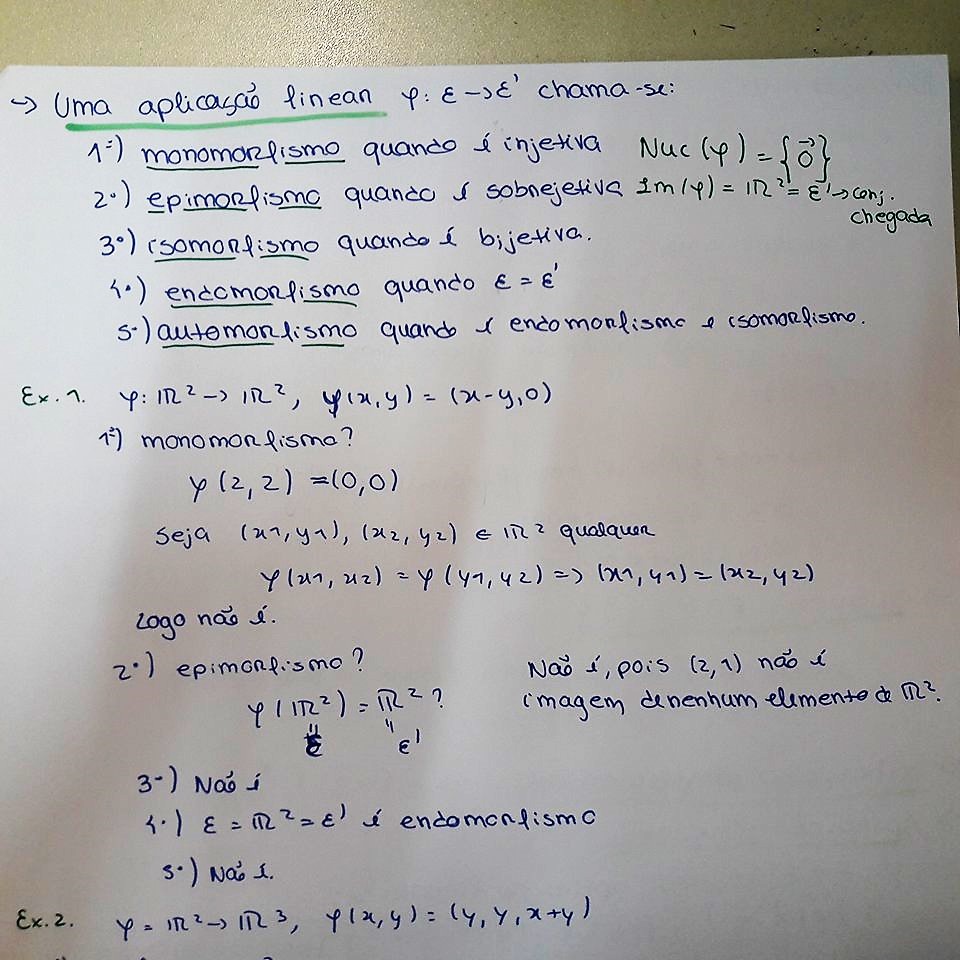 → Uma aplicação linear φ: ε → ε' chama-se:
1º) monomorfismo quando é injetiva Nuc(φ) = {0⃗}
2º) epimorfismo quando é sobrejetiva Im(φ) = IR² = ε' → conj. chegada
3º) isomorfismo quando é bijetiva.
4º) endomorfismo quando ε = ε'
5º) automorfismo quando é endomorfismo e isomorfismo.
Ex. 1. φ: IR² → IR², φ(x,y) = (x-y,0)
1º) monomorfismo?
φ(2,2) = (0,0)
Seja (x1,y1), (x2,y2) ∈ IR² qualquer
φ(x1,x2) = φ(y1,y2) => (x1,y1) = (x2,y2)
Logo não é.
2º) epimorfismo? Não é, pois (2,1) não é
φ(IR²) = IR²? imagem de nenhum elemento de IR².
" "
ε ε'
3º) Não é
4º) ε = IR² = ε' é endomorfismo
5º) Não é.
Ex. 2. φ = IR² → IR³, φ(x,y) = (y,y,x+y)